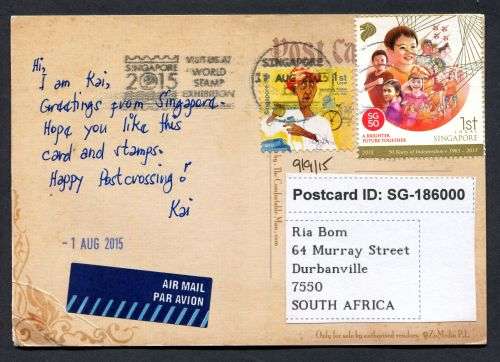 Hi,
I am Kai,
Greetings from Singapore.
Hope you like this
card and stamps.
Happy Postcrossing!
Kai
- 1 AUG 2015
AIR MAIL
PAR AVION
SINGAPORE
2015
VISIT US AT
WORLD
STAMP
EXHIBITION
Post Ca
SINGAPORE
AUG 2015
1st
Singapore
SG
50
A BRIGHTER
FUTURE TOGETHER
1st
SINGAPORE
2015 50 Years of Independence 1965 - 2015
9/9/15
Postcard ID: SG-186000
Ria Bom
64 Murray Street
Durbanville
7550
SOUTH AFRICA
Only for sale by authorised vendors.